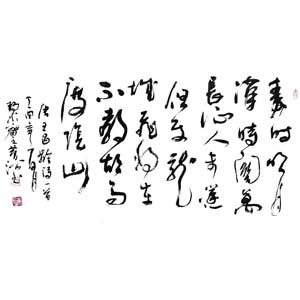 秦時明月
漢時關萬
長征人未還
但使龍
城飛將在
不教胡馬
度陰山
唐王昌齡詩一首
丁酉年月